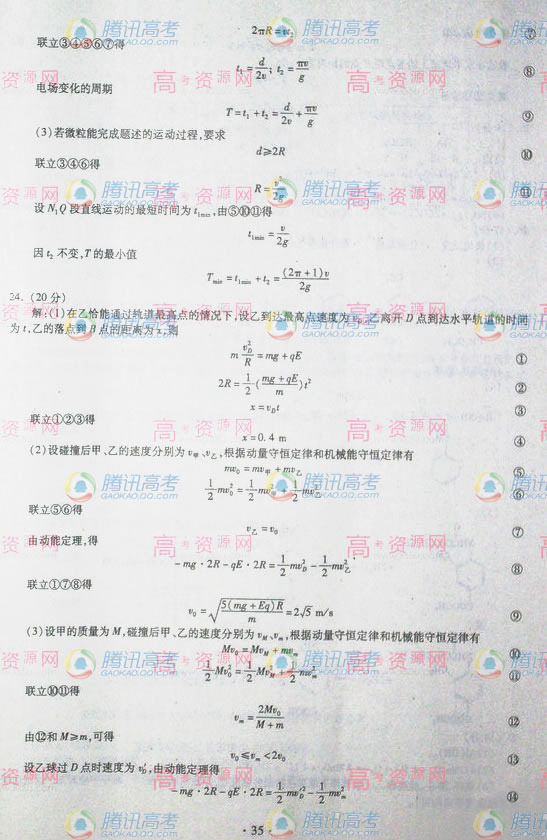 2πR = vt₂ ⑦
联立③④⑤⑥⑦得
t₁ = d/2v; t₂ = πv/g ⑧
电场变化的周期
T = t₁ + t₂ = d/2v + πv/g ⑨
(3)若微粒能完成题述的运动过程,要求
d ≥ 2R ⑩
联立③④⑥得
R = v²/2g ⑪
设 N₁Q 段直线运动的最短时间为 t₁min,由⑤⑩⑪得
t₁min = v/2g
因 t₂ 不变,T 的最小值
Tmin = t₁min + t₂ = (2π+1)v/2g
24. (20分)
解:(1)在乙恰能通过轨道最高点的情况下,设乙到达最高点速度为 v_D,乙离开 D 点到达水平轨道的时间
为 t,乙的落点到 B 点的距离为 x,则
m v_D²/R = mg + qE ①
2R = 1/2 ((mg+qE)/m) t² ②
x = v_D t ③
联立①②③得
x = 0.4 m ④
(2)设碰撞后甲、乙的速度分别为 v甲、v乙,根据动量守恒定律和机械能守恒定律有
mv₀ = mv甲 + mv乙 ⑤
1/2 mv₀² = 1/2 mv甲² + 1/2 mv乙² ⑥
联立⑤⑥得
v乙 = v₀ ⑦
由动能定理,得
-mg·2R - qE·2R = 1/2 mv_D² - 1/2 mv乙² ⑧
联立①⑦⑧得
v₀ = √(5(mg+Eq)R/m) = 2√5 m/s ⑨
(3)设甲的质量为 M,碰撞后甲、乙的速度分别为 v_M、v_m,根据动量守恒定律和机械能守恒定律有
Mv₀ = Mv_M + mv_m ⑩
1/2 Mv₀² = 1/2 Mv_M² + 1/2 mv_m² ⑪
联立⑩⑪得
v_m = 2Mv₀/(M+m) ⑫
由⑫和 M ≥ m,可得
v₀ ≤ v_m < 2v₀ ⑬
设乙球过 D 点时速度为 v_D′,由动能定理得
-mg·2R - qE·2R = 1/2 mv_D′² - 1/2 mv_m² ⑭
·35·
腾讯高考
GAOKAO.QQ.COM
高考资源网